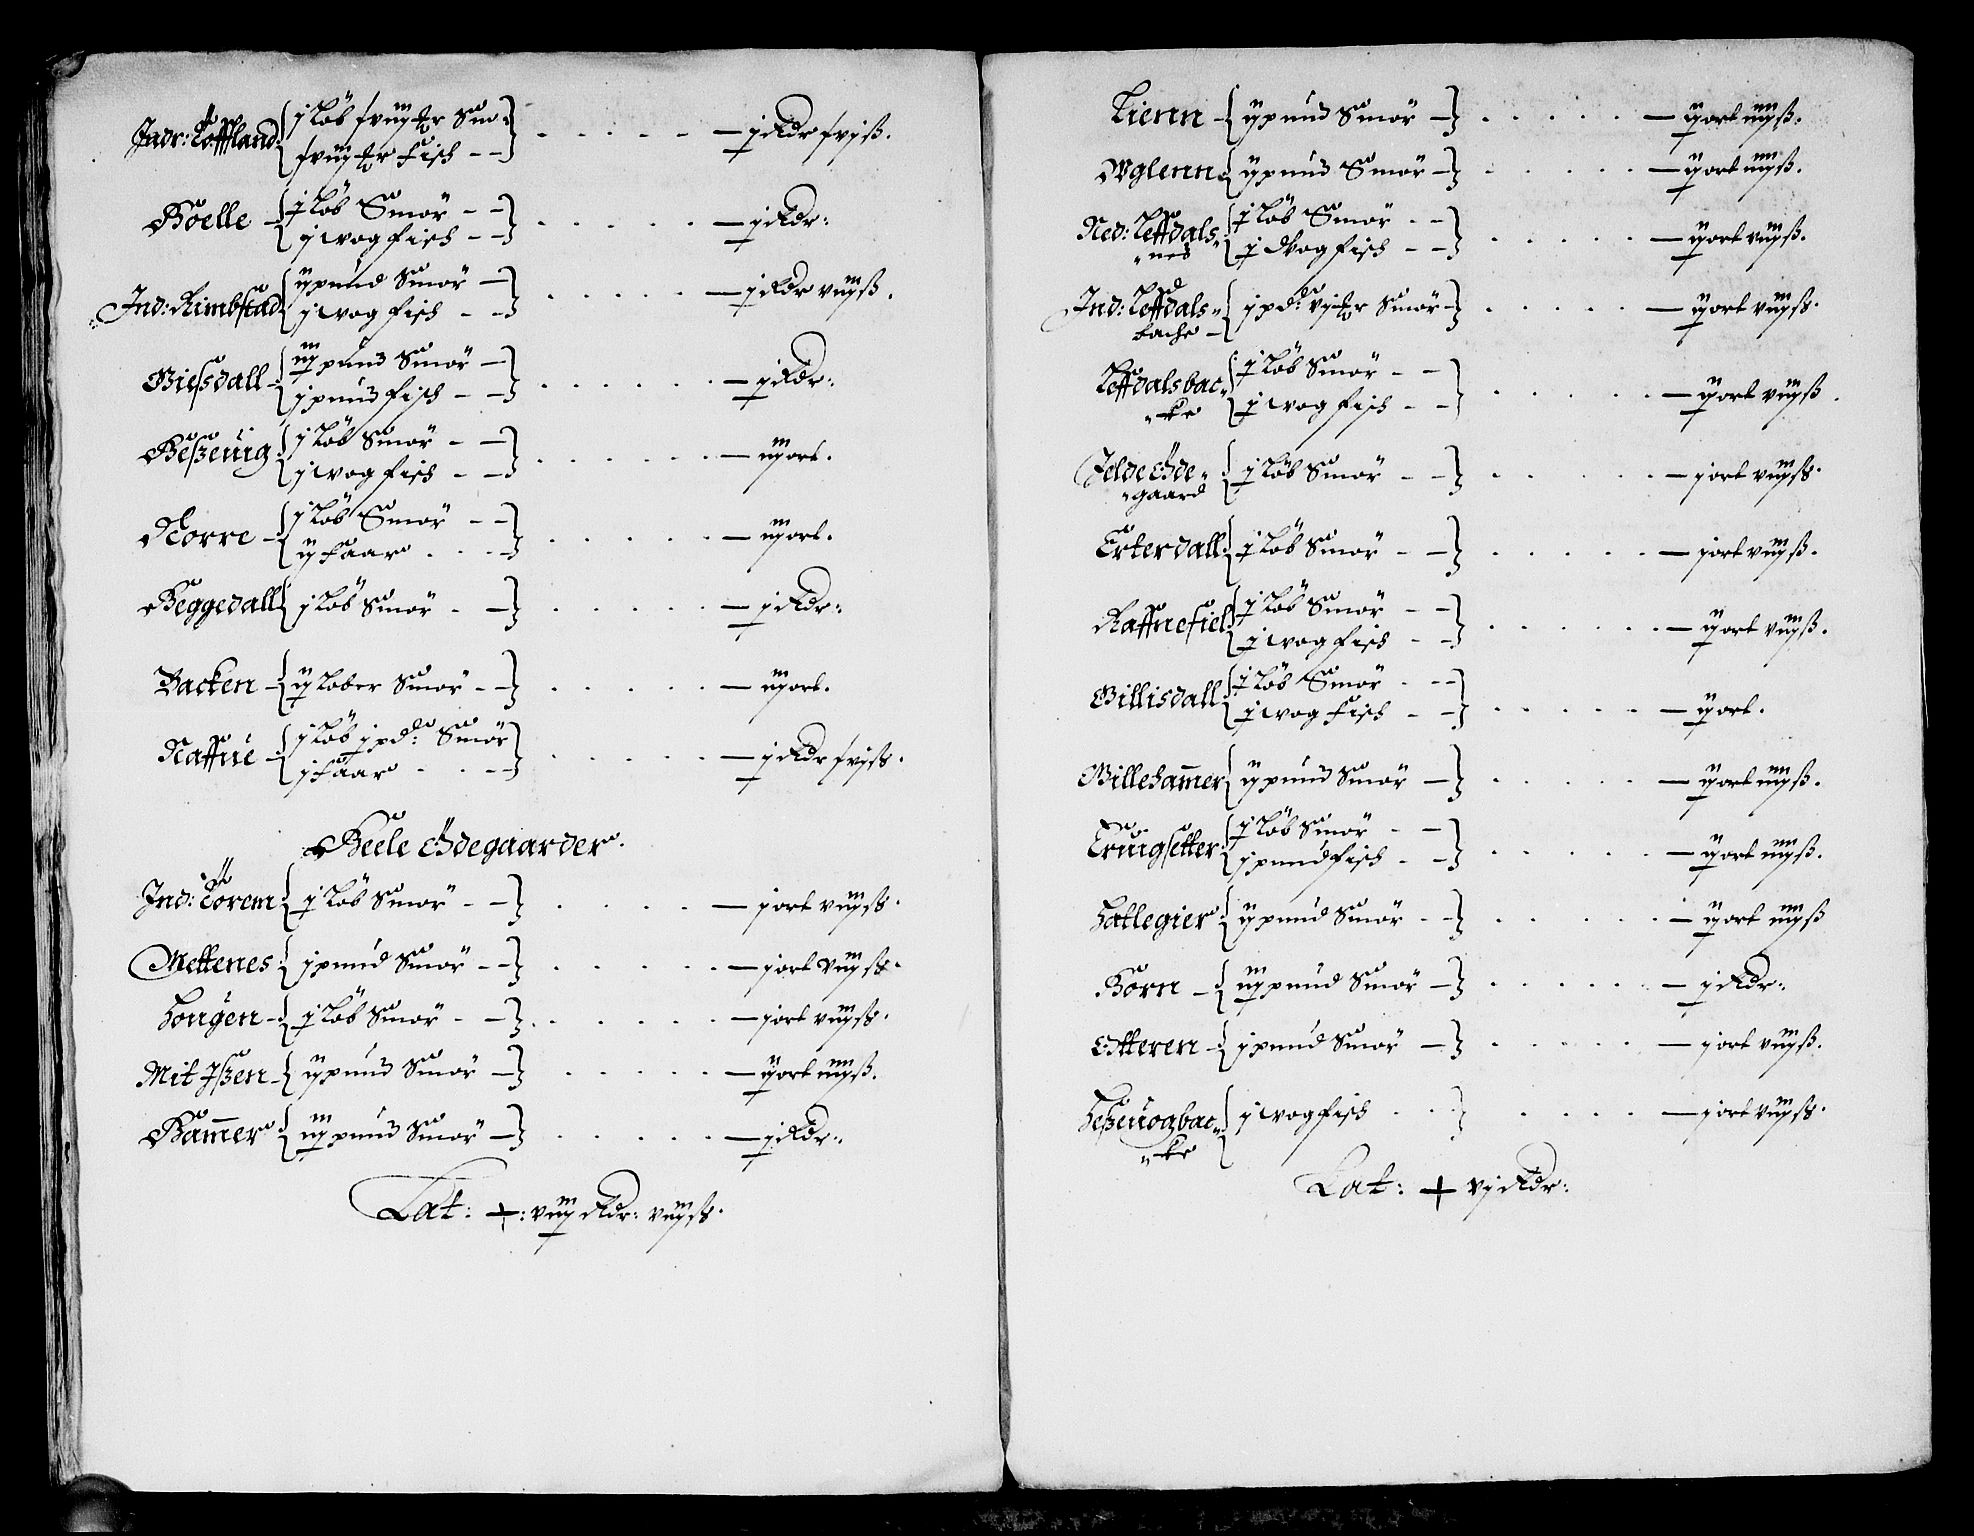 Indr: Tøffland { j løb Smø:
Fisch - -
j Rdr
Bøelle - { j løb Smør - -
j wog fisch - -
— j Rdr:
Ind: Rimbstad { ij pund Smør —
j wog fisch - -
— j Rdr viij ß.
Giesdall - { iij pund Smør —
j pund fisch - -
— j Rdr:
{ j løb Smør - —
j wog fisch - —
— iij ort.
Norre - { j løb Smør - -
ij faar
— iij ort.
Beggedall { j løb Smør - —
— j Rdr:
Backen - { ij løber Smør - -
— iij ort.
Raffne - { j løb j pd: Smør
j faar
— j Rdr
Beele Ødegaarder.
Ind: Torem { j løb Smør - -
— j ort viij ß.
Mettenes { j pund Smør - -
— j ort viij ß.
Hougen - { j løb Smør - —
— j ort viij ß.
Mit Jszen - { ij pund Smør —
— ij ort iiij ß.
Bammer { iij pund Smør —
— j Rdr:
Lat: +: viij Rdr: viij ß.
Lienn - { ij pund Smør —
— ij ort iiij ß.
Wglenn { ij pund Smør —
— ij ort iiij ß.
Ned: Leffdals„ { j løb Smør - -
„nes j wog fisch - -
— ij ort viij ß.
Ind: Leffdals„ { j pd: Smør -
backe -
— ij ort viij ß.
Leffdalsbac„ { j løb Smør - -
„ke j wog fisch - -
— ij ort viij ß.
Jelde Øde„ { j løb Smør - -
„gaard
— j ort viij ß.
Erterdall { j løb Smør - —
— j ort viij ß.
Raffnefiel { j løb Smør - —
j wog fisch - -
— ij ort viij ß.
Gillisdall { j løb Smør - —
j wog fisch - -
— ij ort.
Gillehammer { ij pund Smør —
— ij ort iiij ß.
Truigsetter { j løb Smør - —
j pund fisch - -
— ij ort iiij ß.
Hatlegier { ij pund Smør - -
— ij ort iiij ß
Børn - { iij pund Smør —
— j Rdr:
Otteren - { j pund Smør —
— j ort viij ß.
{ j wog fisch
„ke
— j ort viij ß.
Lat: + vj Rdr: